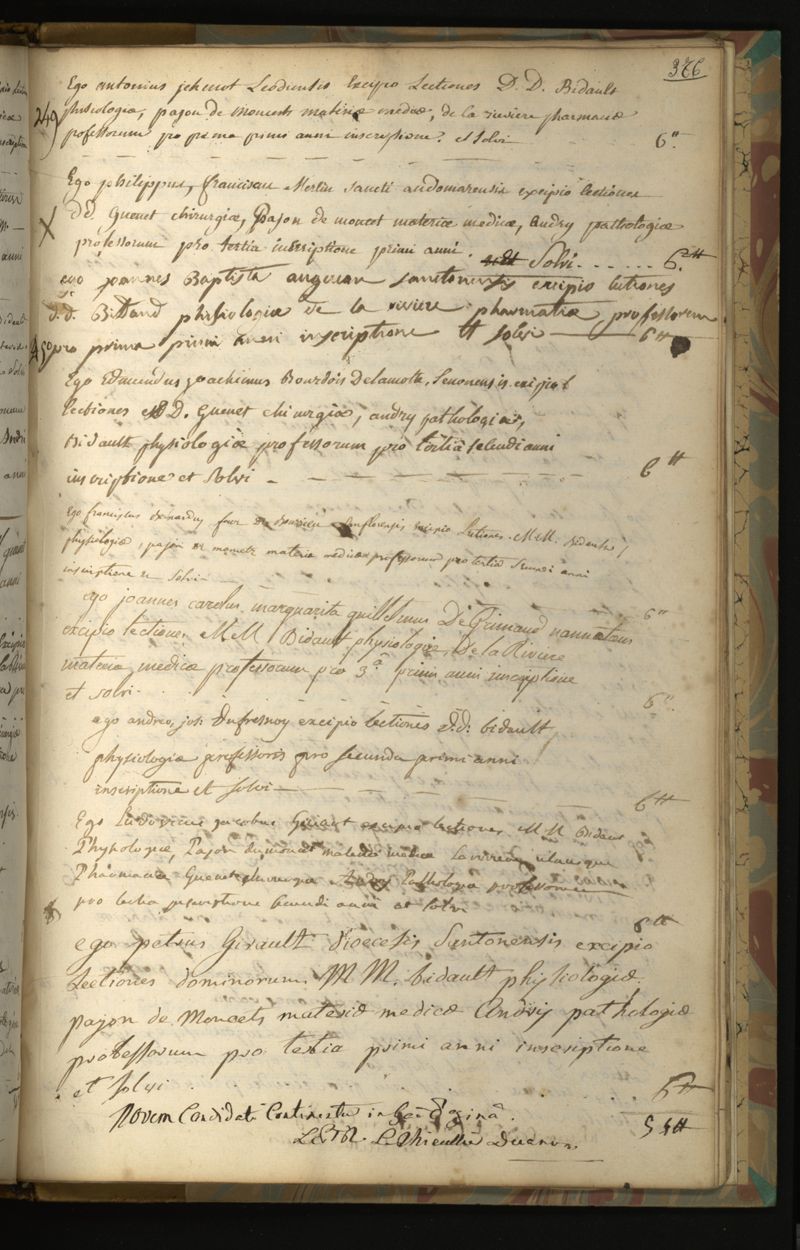 376
Ego antonius jehenot Leodiensis Excipio Lectiones D.D. Bidault
249) phisiologiæ, pajon de moncets materiæ medicæ, de la riviere pharmaciæ
professorum pro prima primi anni inscriptione et solvi 6"
Ego philippus, franciscus Merlin sancti audomarensis excipio lectiones
X dd. Guenet chirurgiæ, Pajon de moncet materiæ medicæ, andry pathologiæ
professorum pro tertia inscriptione primi anni. Solvi....... 6.tt
ego joannes Baptista sanctonensis excipio lectiones
d.d. Bidaud phisiologiæ de la riviere pharmatiæ professorum
250 pro prima primi anni inscriptione et solvi 6tt
Ego Edmundus joachimus Bourdois Delamotte, Senonensis excipio
lectiones DD. Guenet chirurgiæ, andry pathologiæ,
Bidault physiologiæ professorum pro tertia secundi anni
inscriptione et solvi 6tt
Ego franciscus excipio Lectiones MM. Bidault,
physiologiæ, pajon de moncets materiæ medicæ professorum pro tertia secundi anni
inscriptione et solvi 6"
ego joannes carolus, margarita guillelmus De Grimaud nannetensis
excipio lectiones MM Bidault physiologiæ, De la Riviere
materiæ medicæ professorum pro 3a primi anni inscriptione
et solvi. 6"
ego andreas, jos: Dufresnoy excipio lectiones d.d. bidault,
physiologiæ professoris pro secunda primi anni
inscriptione et solvi 6tt
Ego Ludovicus jacobus excipio lectiones MM Bidault
Physiologiæ, Pajon de moncets materiæ medicæ
Pharmaciæ Guenet chirurgiæ Andry Pathologiæ professorum
pro inscriptione secundi anni et solvi 6tt
ego petrus Girault dioecesis Santonensis excipio
Lectiones dominorum MM. bidault physiologiæ
pajon de Moncets materiæ medicæ Andry pathologiæ
professorum pro tertia primi anni inscriptione
et solvi 6tt
Novem Candidati Continentur in hac paginâ. 54tt
Le Thieullier Decanus